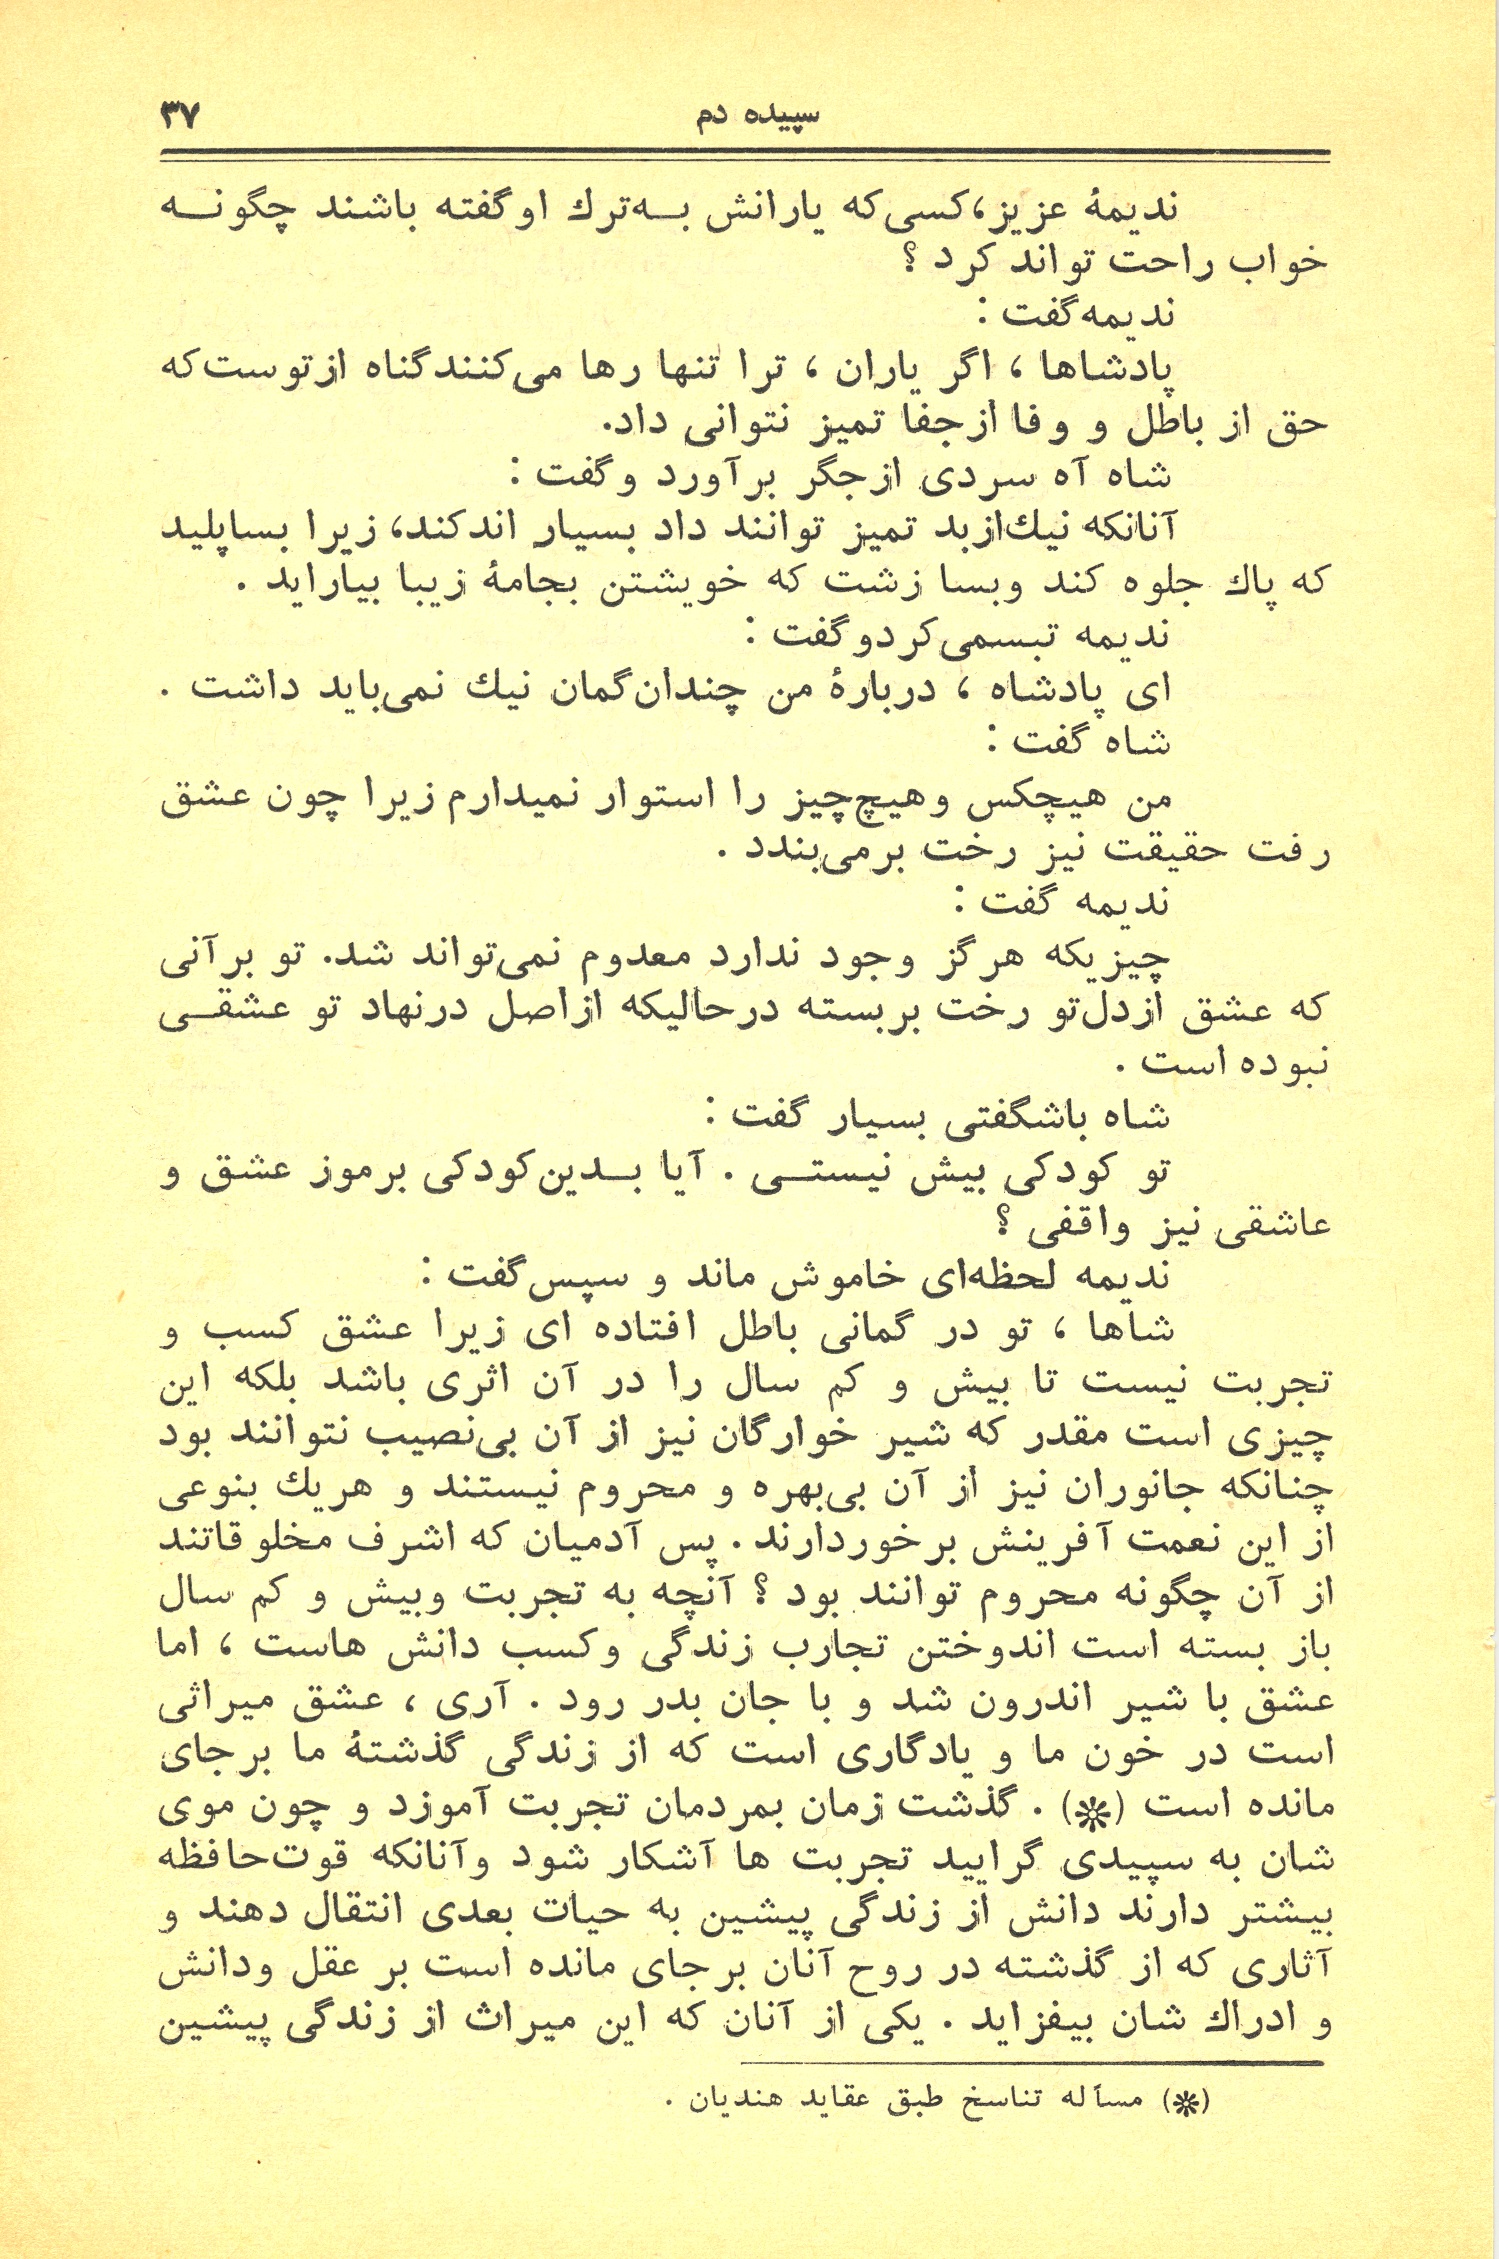 سپیده دم ۳۷
ندیمهٔ عزیز، کسی که یارانش به ترك او گفته باشند چگونه
خواب راحت تواند کرد ؟
ندیمه گفت :
پادشاها ، اگر یاران ، ترا تنها رها می‌کنند گناه از توست که
حق از باطل و وفا از جفا تمیز نتوانی داد.
شاه آه سردی از جگر برآورد و گفت :
آنانکه نیك از بد تمیز توانند داد بسیار اندکند، زیرا بسا پلید
که پاك جلوه کند و بسا زشت که خویشتن بجامهٔ زیبا بیاراید .
ندیمه تبسمی کرد و گفت :
ای پادشاه ، دربارهٔ من چندان گمان نیك نمی‌باید داشت .
شاه گفت :
من هیچکس و هیچ چیز را استوار نمیدارم زیرا چون عشق
رفت حقیقت نیز رخت برمی‌بندد .
ندیمه گفت :
چیزیکه هرگز وجود ندارد معدوم نمی‌تواند شد. تو برآنی
که عشق از دل تو رخت بربسته درحالیکه از اصل درنهاد تو عشقی
نبوده است .
شاه باشگفتی بسیار گفت :
تو کودکی بیش نیستی . آیا بدین کودکی برموز عشق و
عاشقی نیز واقفی ؟
ندیمه لحظه‌ای خاموش ماند و سپس گفت :
شاها ، تو در گمانی باطل افتاده ای زیرا عشق کسب و
تجربت نیست تا بیش و کم سال را در آن اثری باشد بلکه این
چیزی است مقدر که شیر خوارگان نیز از آن بی‌نصیب نتوانند بود
چنانکه جانوران نیز از آن بی‌بهره و محروم نیستند و هریك بنوعی
از این نعمت آفرینش برخوردارند . پس آدمیان که اشرف مخلوقاتند
از آن چگونه محروم توانند بود ؟ آنچه به تجربت وبیش و کم سال
باز بسته است اندوختن تجارب زندگی وکسب دانش هاست ، اما
عشق با شیر اندرون شد و با جان بدر رود . آری ، عشق میراثی
است در خون ما و یادگاری است که از زندگی گذشتهٔ ما برجای
مانده است (❊) . گذشت زمان بمردمان تجربت آموزد و چون موی
شان به سپیدی گرایید تجربت ها آشکار شود وآنانکه قوت حافظه
بیشتر دارند دانش از زندگی پیشین به حیات بعدی انتقال دهند و
آثاری که از گذشته در روح آنان برجای مانده است بر عقل ودانش
و ادراك شان بیفزاید . یکی از آنان که این میراث از زندگی پیشین
(❊) مسأله تناسخ طبق عقاید هندیان .